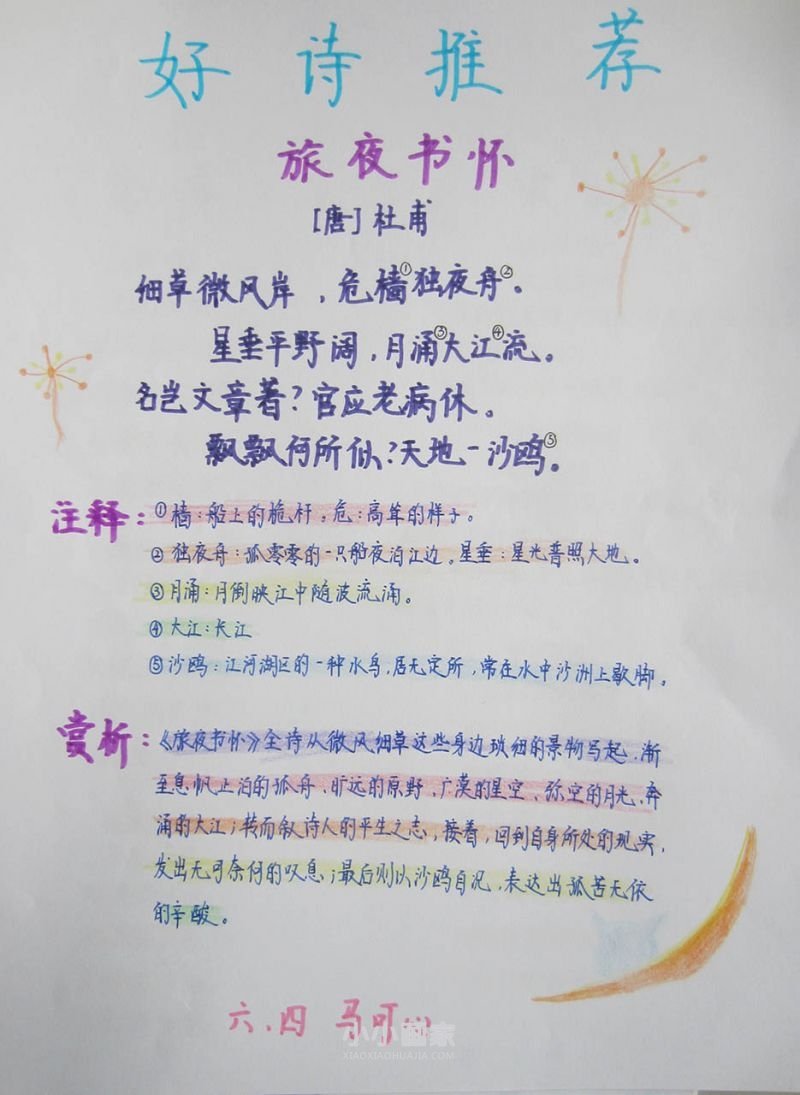 好诗推荐
旅夜书怀
[唐]杜甫
细草微风岸,危樯①独夜舟②。
星垂平野阔,月涌③大江④流。
名岂文章著?官应老病休。
飘飘何所似?天地一沙鸥⑤。
注释:①樯:船上的桅杆。危:高耸的样子。
②独夜舟:孤零零的一只船夜泊江边。星垂:星光普照大地。
③月涌:月倒映江中随波流涌。
④大江:长江
⑤沙鸥:江河湖区的一种水鸟,居无定所,常在水中沙洲上歇脚。
赏析:《旅夜书怀》全诗从微风细草这些身边琐细的景物写起,渐
至息帆止泊的孤舟、旷远的原野、广漠的星空、弥空的月光、奔
涌的大江;转而叙诗人的平生之志,接着,回到自身所处的现实,
发出无可奈何的叹息;最后则以沙鸥自况,表达出孤苦无依
的辛酸。
六.四 马可心
小小画家
XIAOXIAOHUAJIA.COM